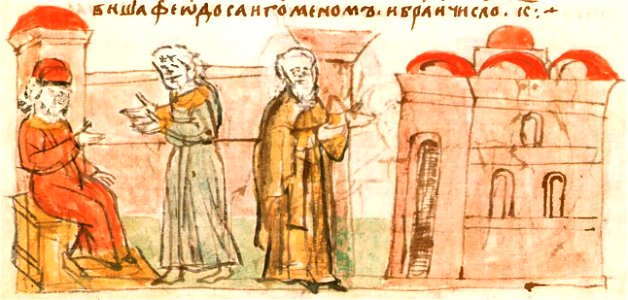 виша феѡдоса игоменомъ · и браи число · к · :~